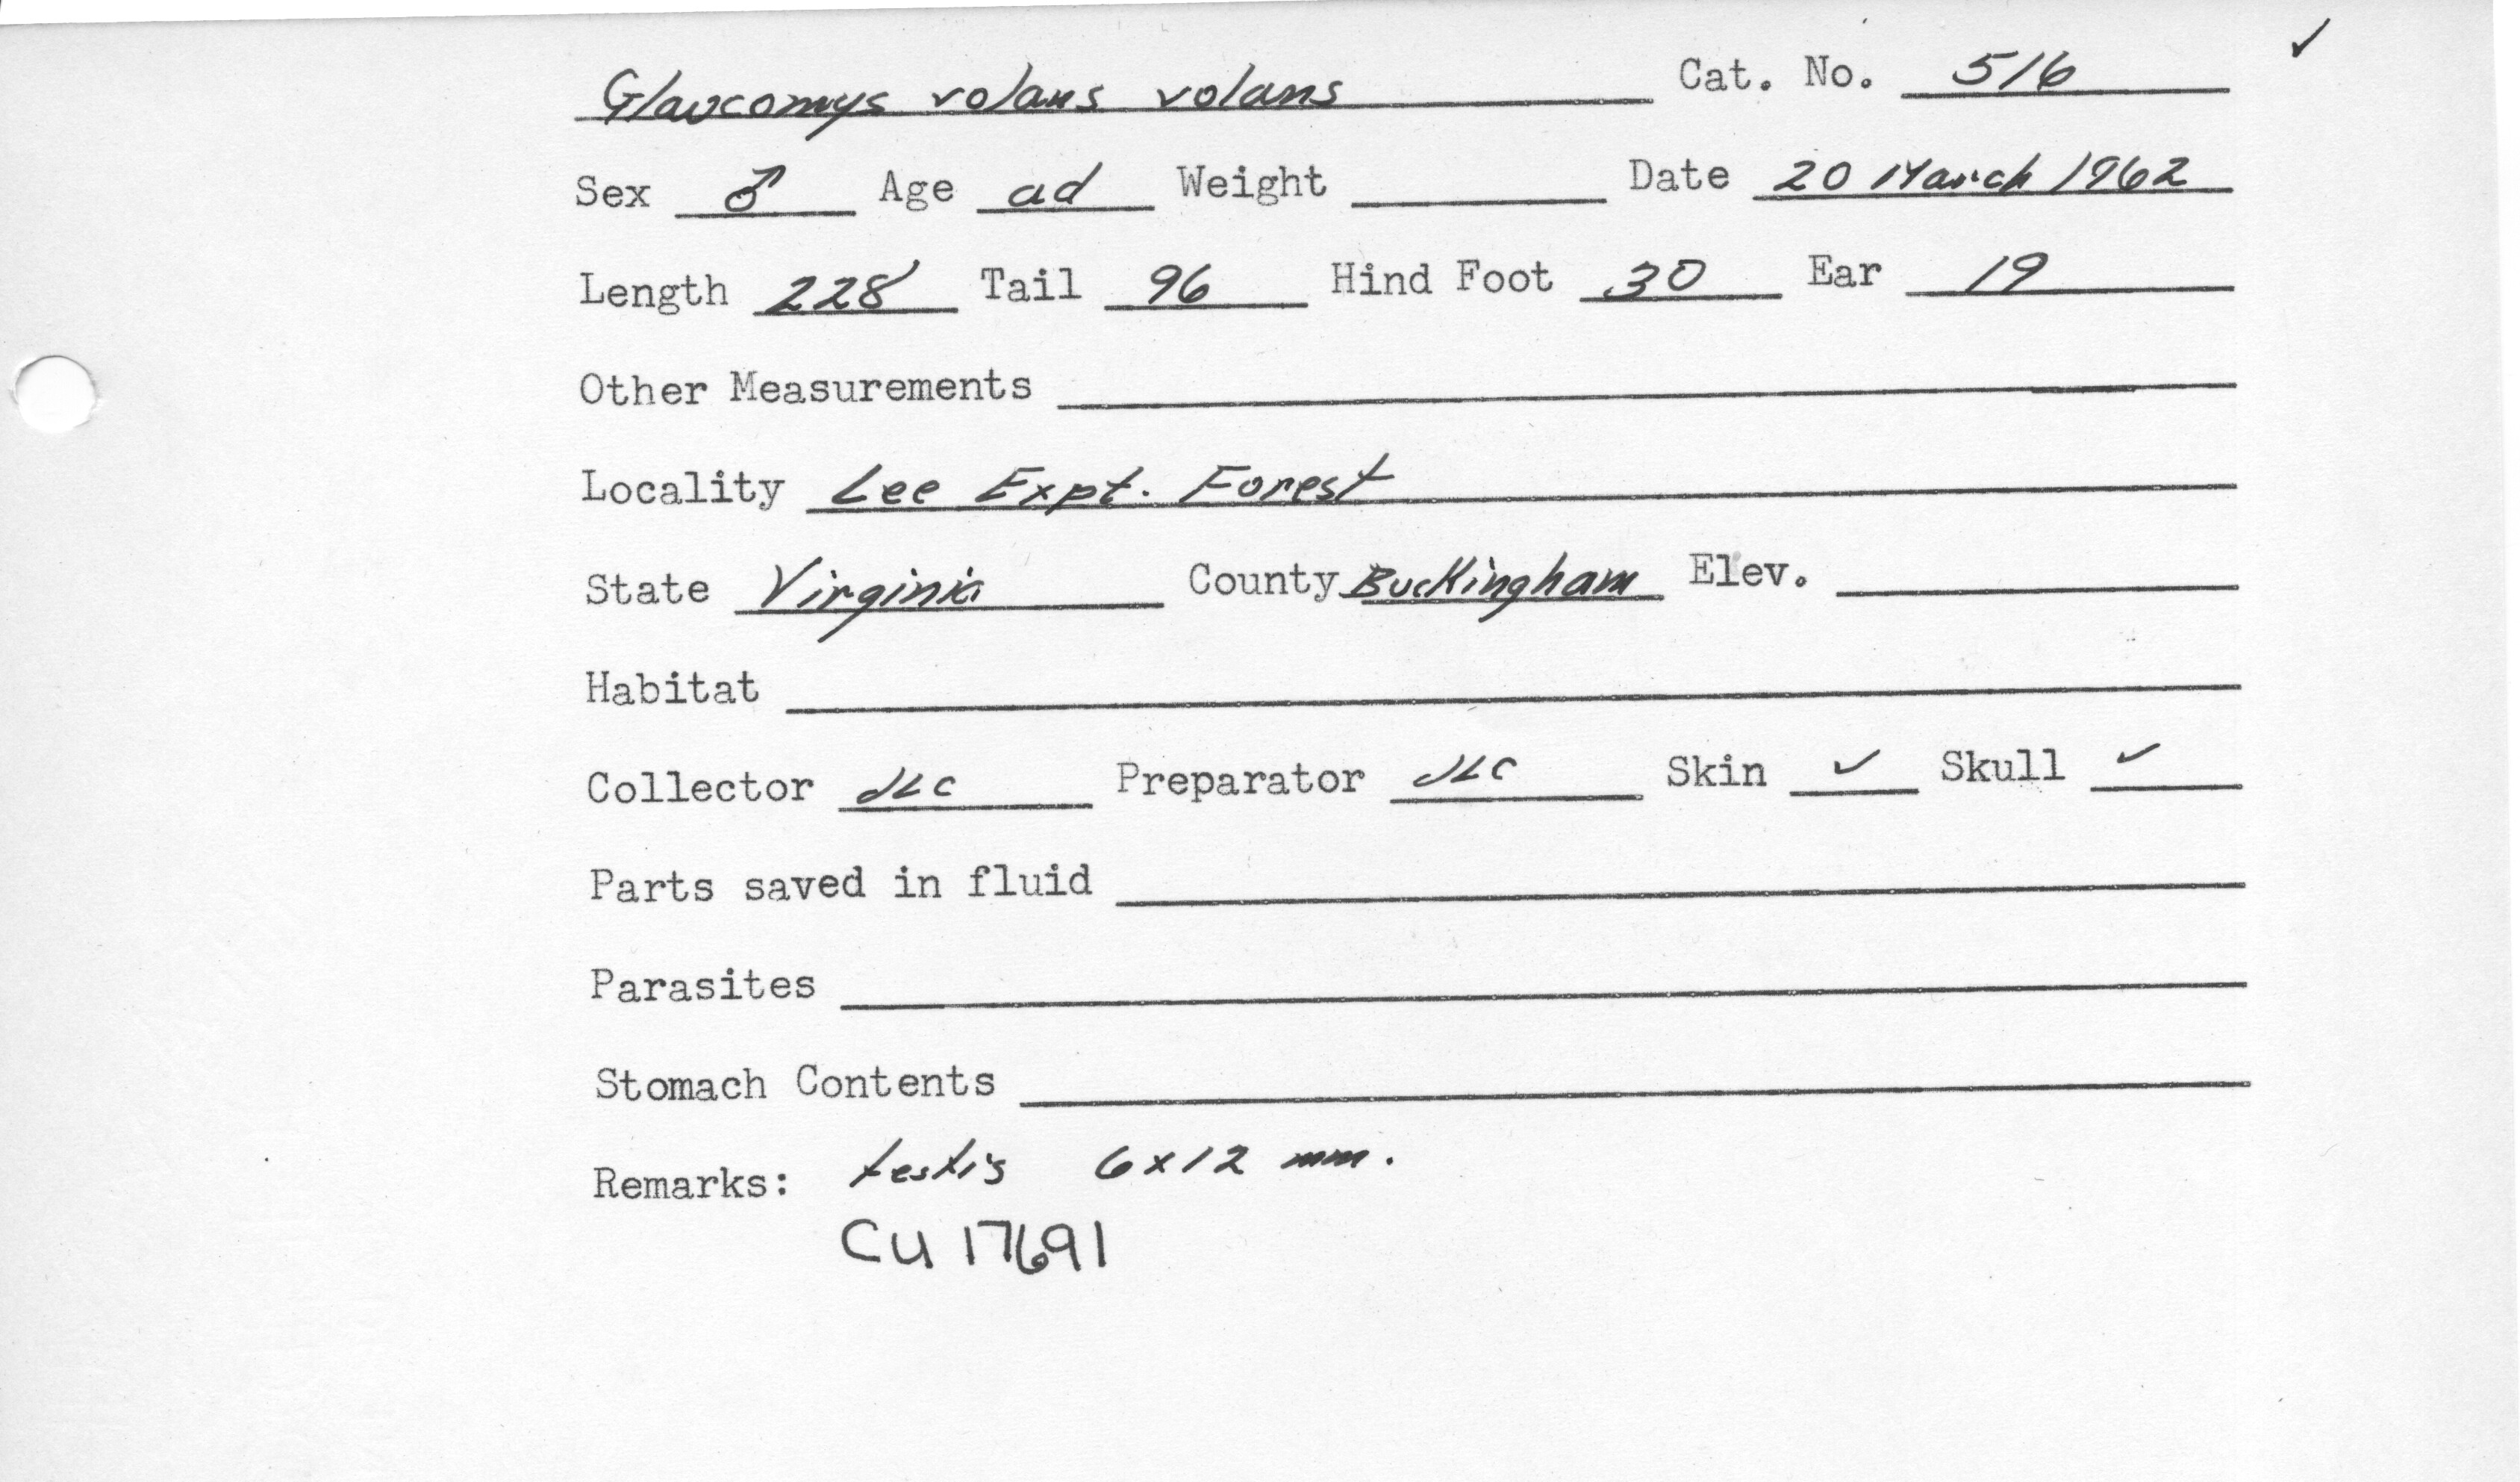 Glaucomys volans volans Cat. No. 516 ✓
Sex ♂ Age ad Weight Date 20 March 1962
Length 228 Tail 96 Hind Foot 30 Ear 19
Other Measurements
Locality Lee Expt. Forest
State Virginia County Buckingham Elev.
Habitat
Collector JLC Preparator JLC Skin ✓ Skull ✓
Parts saved in fluid
Parasites
Stomach Contents
Remarks: testis 6x12 mm.
CU 17691